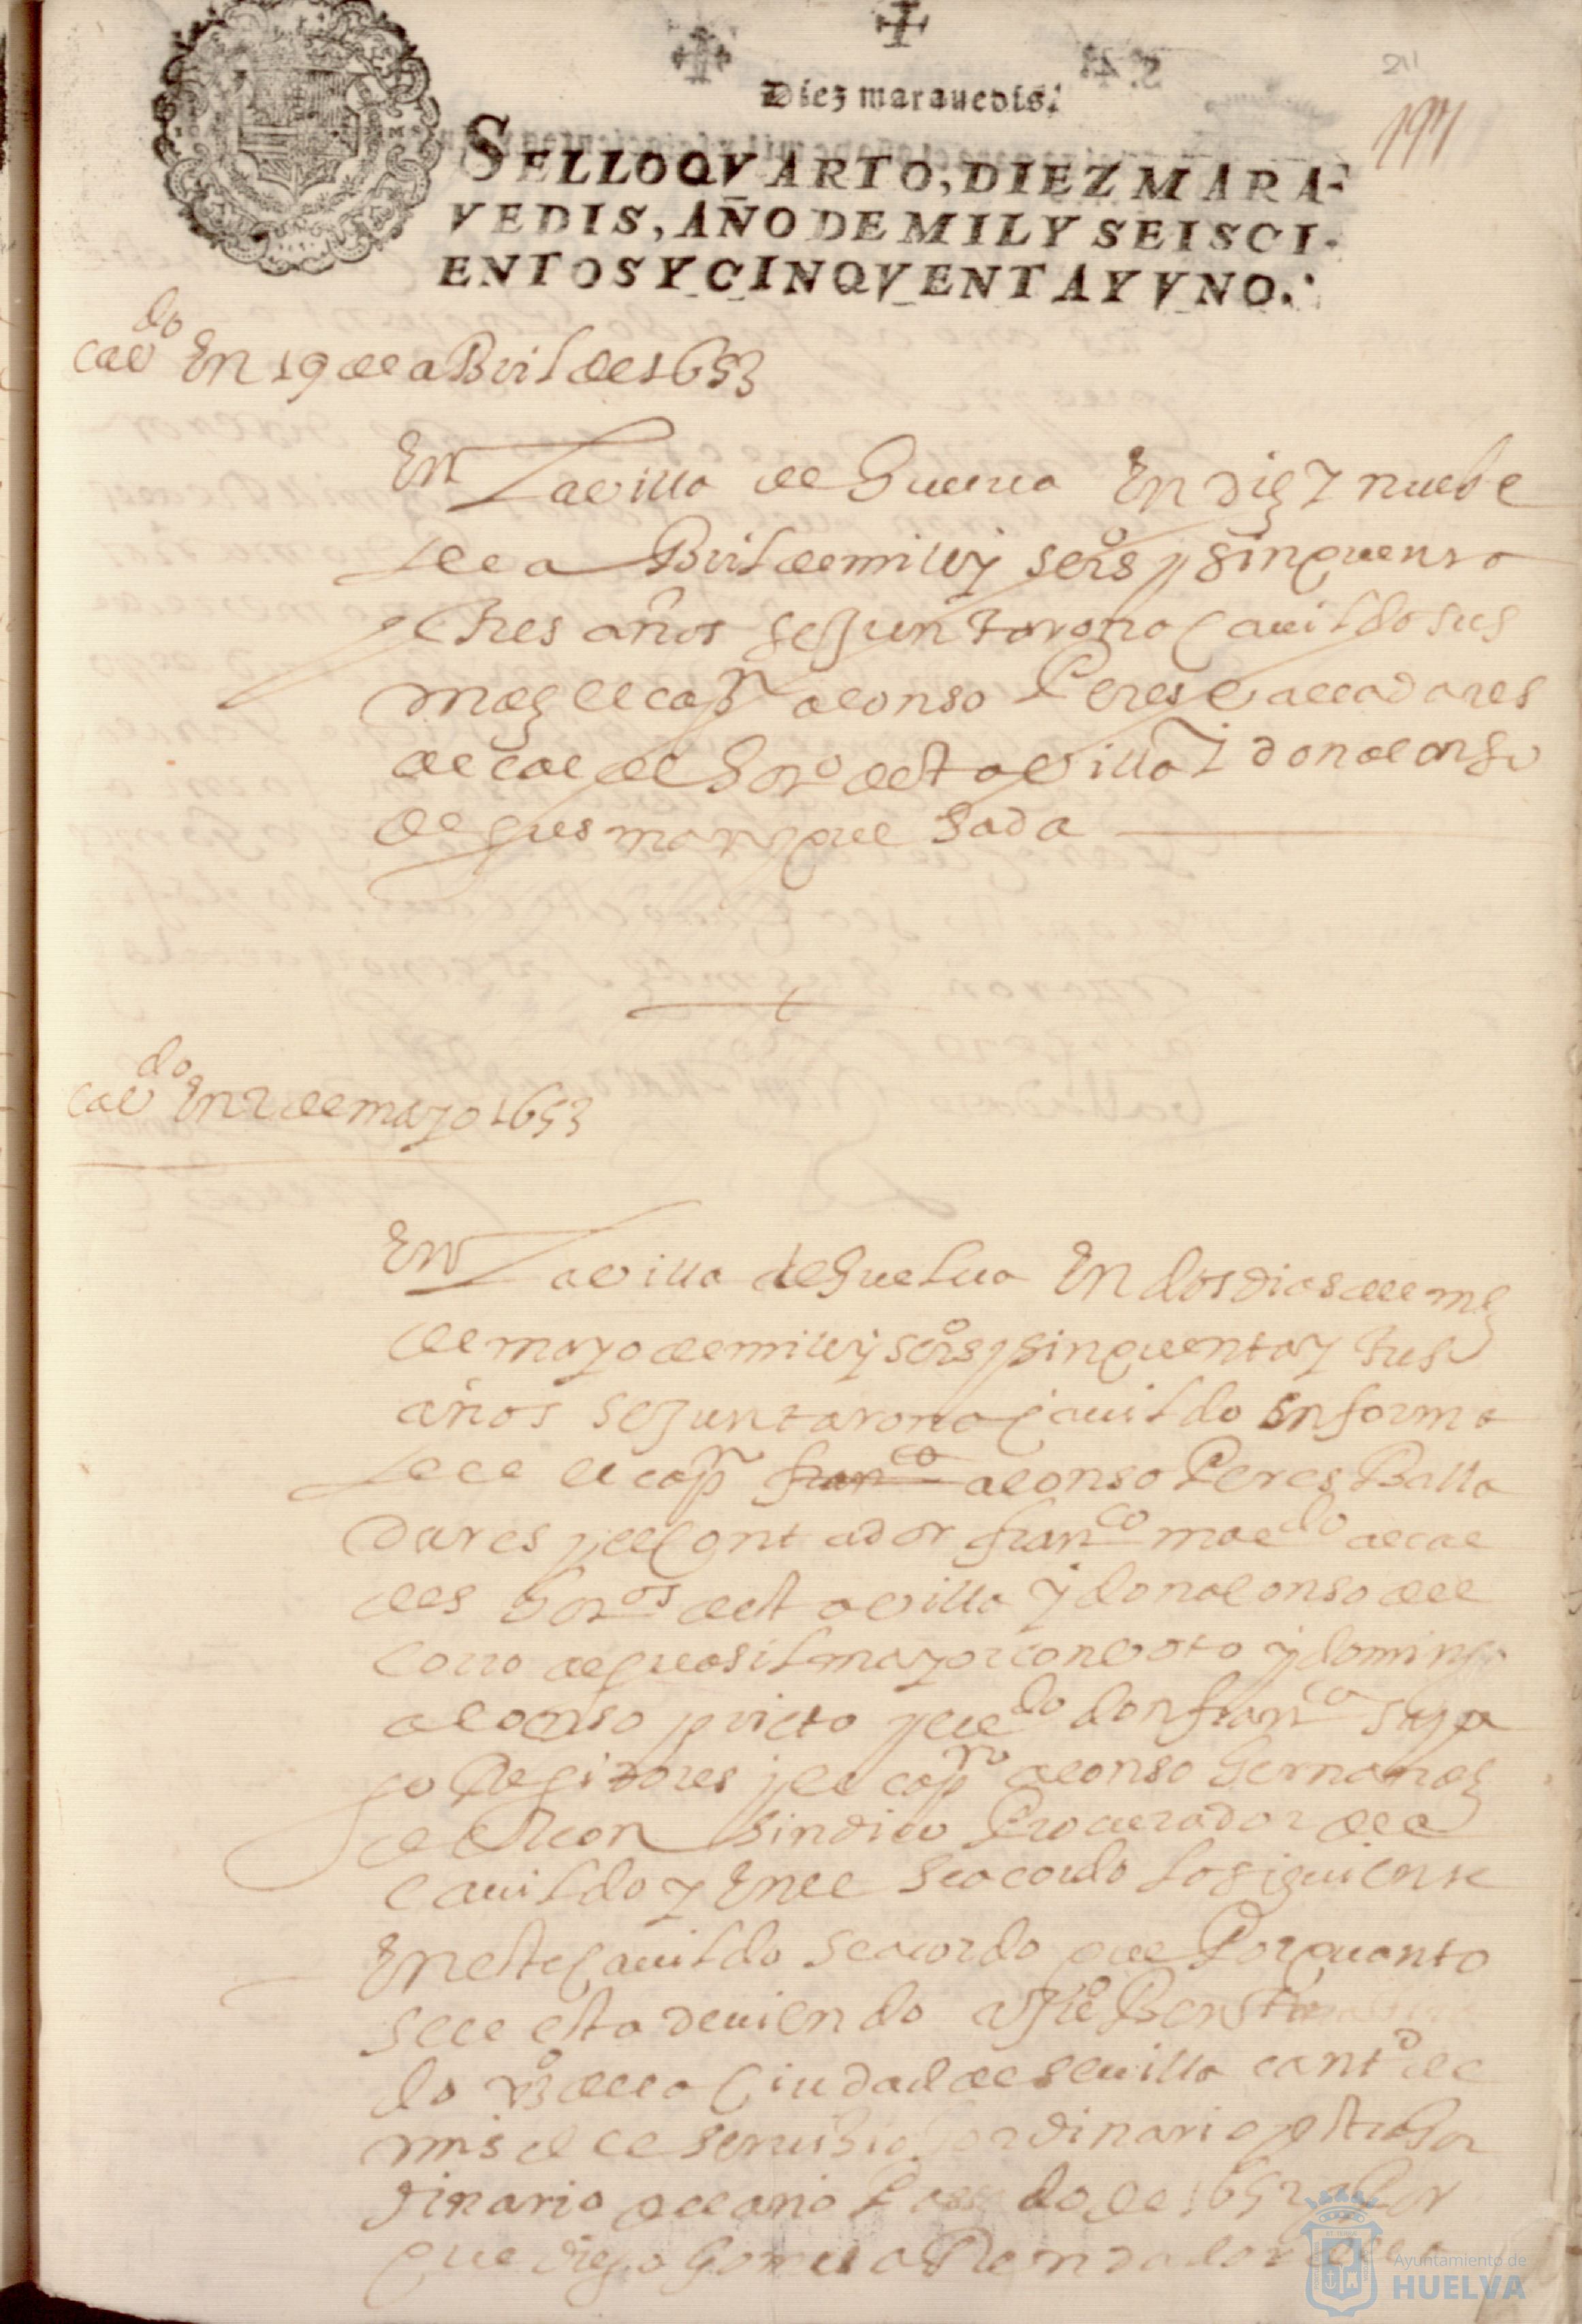 Diez marauedis.
197
SELLO QVARTO, DIEZ MARA-
VEDIS, AÑO DE MIL Y SEISCI-
ENTOS Y CINQVENTA Y VNO.
cavdo En 19 de aBril de 1653
En La villa de Guelua En diez y nuebe
de aBril de mil y seisº y sinquenta
y tres años se juntaron a cauildo sus
mdes el capn alonso Peres valladares
alcalde hordo desta villa y don alonso
de gusman quesada
cavdo En 2 de mayo 1653
En La villa de Guelua En dos dias del mes
de mayo de mil y seisº y sinquenta y tres
años se juntaron a cauildo En forma
el capn franco alonso Peres Balla
dares y el Contador franco maldo alcal
des hordos desta villa y don alonso del
corro alguasil mayor con voto y domingo
alonso prieto y el ldo don franco
Regidores y el capn alonso hernandes
de leon sindico Procurador del
cauildo y En el se acordo lo siguiente
En este Cauildo se acordo que Por quanto
se le esta deuiendo a
do vº de la Ciudad de seuilla cantd de
mrs del seruisio hordinario y estrahor
dinario del año Pasado de 1652 y Por
que diego
Ayuntamiento de
HUELVA